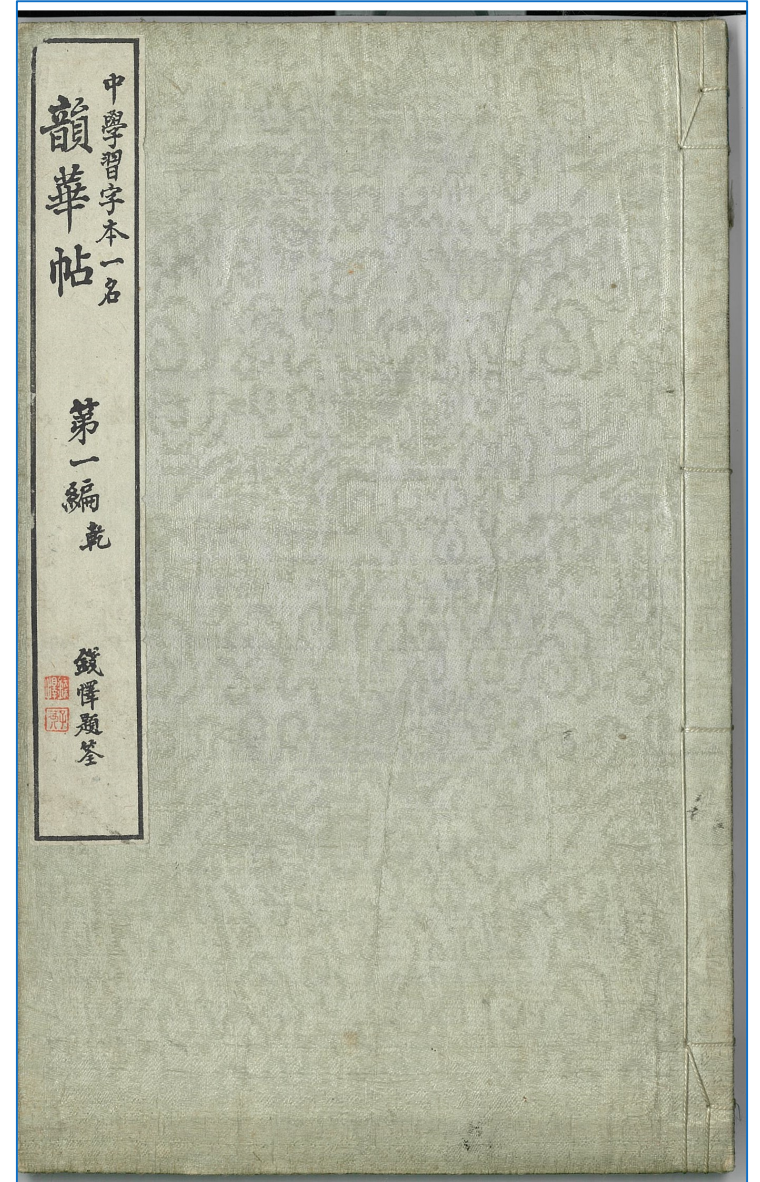 中學習字本一名
韻華帖
第一編乾
錢懌題簽